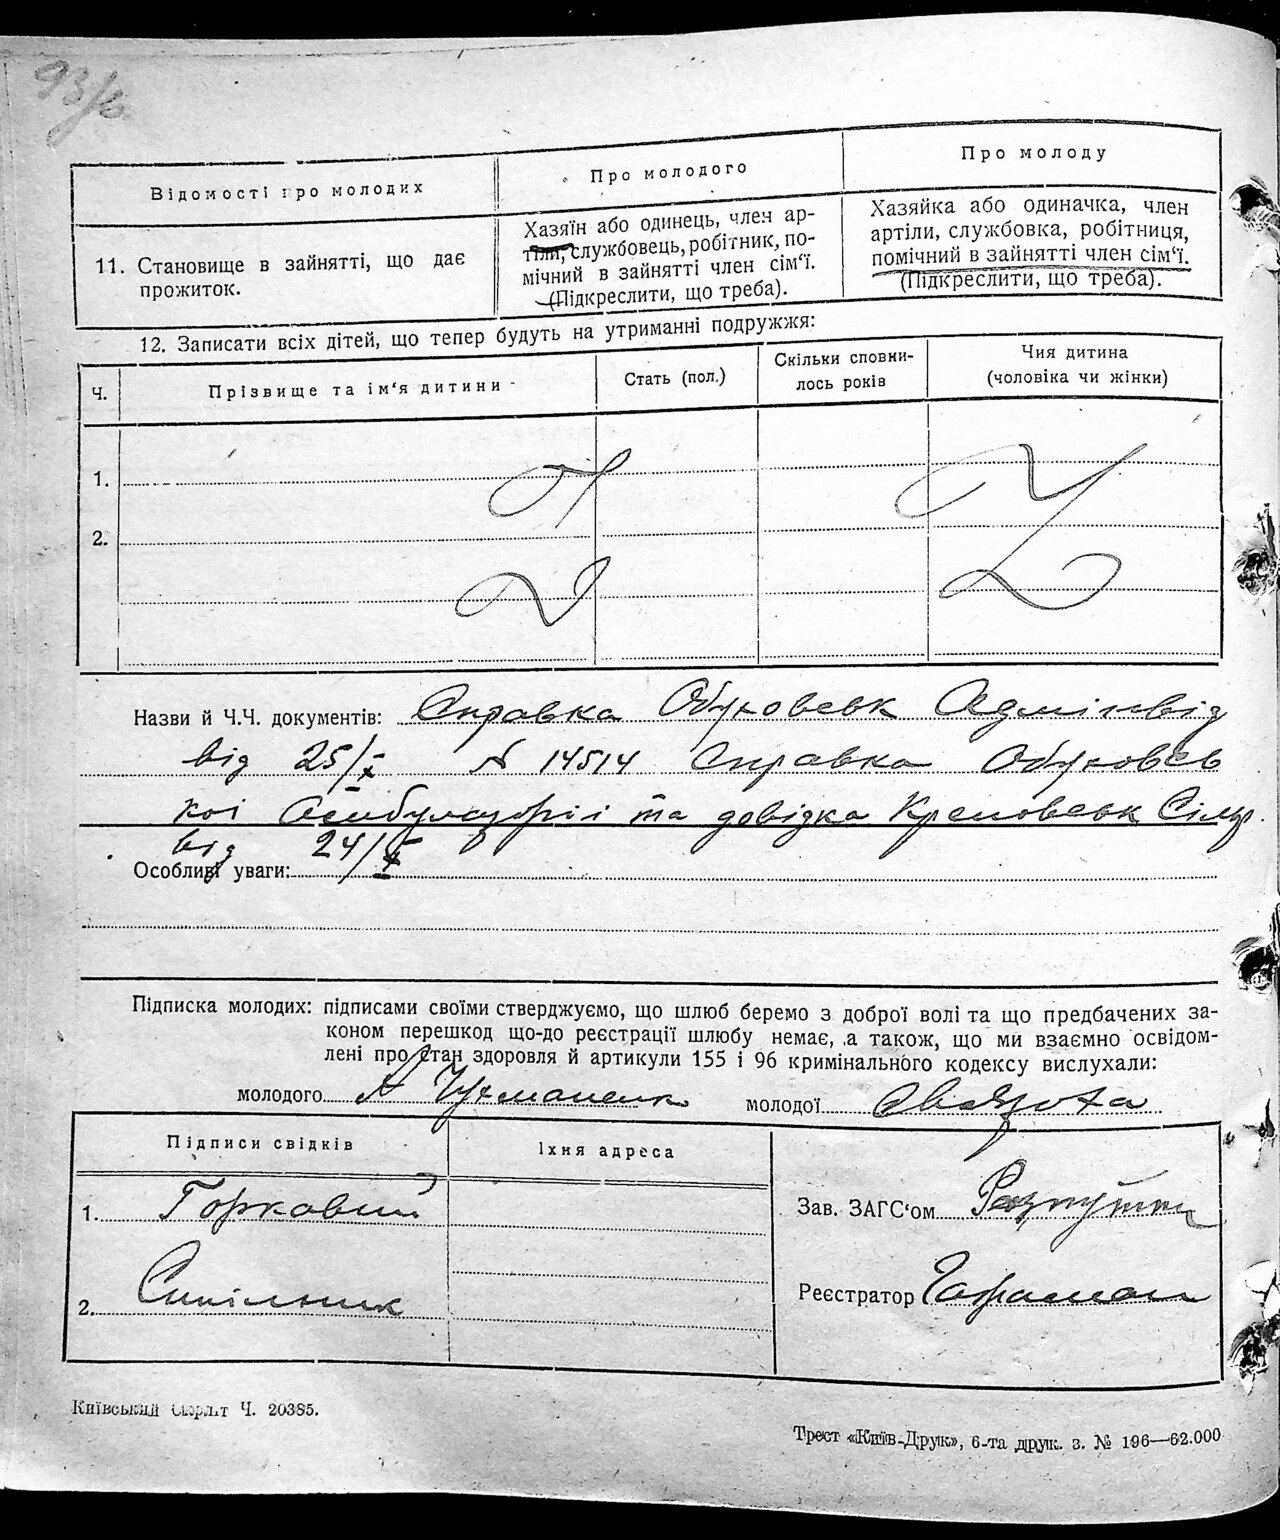 Відомості про молодих
Про молодого
Про молоду
11. Становище в зайнятті, що дає прожиток.
Хазяїн або одинець, член ар-
тіли, службовець, робітник, по-
мічний в зайнятті член сім'ї.
(Підкреслити, що треба).
Хазяйка або одиначка, член
артіли, службовка, робітниця,
помічний в зайнятті член сім'ї.
(Підкреслити, що треба).
12. Записати всіх дітей, що тепер будуть на утриманні подружжя:
Ч.
Прізвище та ім'я дитини
Стать (пол.)
Скільки сповни-
лось років
Чия дитина
(чоловіка чи жінки)
1.
2.
Назви й Ч.Ч. документів: Справка Обуховськ Адмінвід
від 25/X № 14514 Справка Обуховсь
кої Амбулаторії та довідка Сільр.
від 24/X
Особливі уваги:
Підписка молодих: підписами своїми стверджуємо, що шлюб беремо з доброї волі та що предбачених за-
коном перешкод що-до реєстрації шлюбу немає, а також, що ми взаємно освідом-
лені про стан здоровля й артикули 155 і 96 кримінального кодексу вислухали:
молодого
молодої
Підписи свідків
Їхня адреса
1. Горковий
2.
Зав. ЗАГС'ом
Реєстратор
Київський Окрліт Ч. 20385.
Трест «Київ-Друк», 6-та друк. з. № 196—62.000